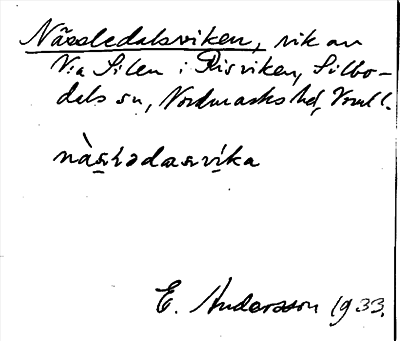 Nässledalsviken, vik av
V:a Silen i Risviken, Silbo-
dals sn, Nordmarks hd, Vrml.
E. Andersson 1933.